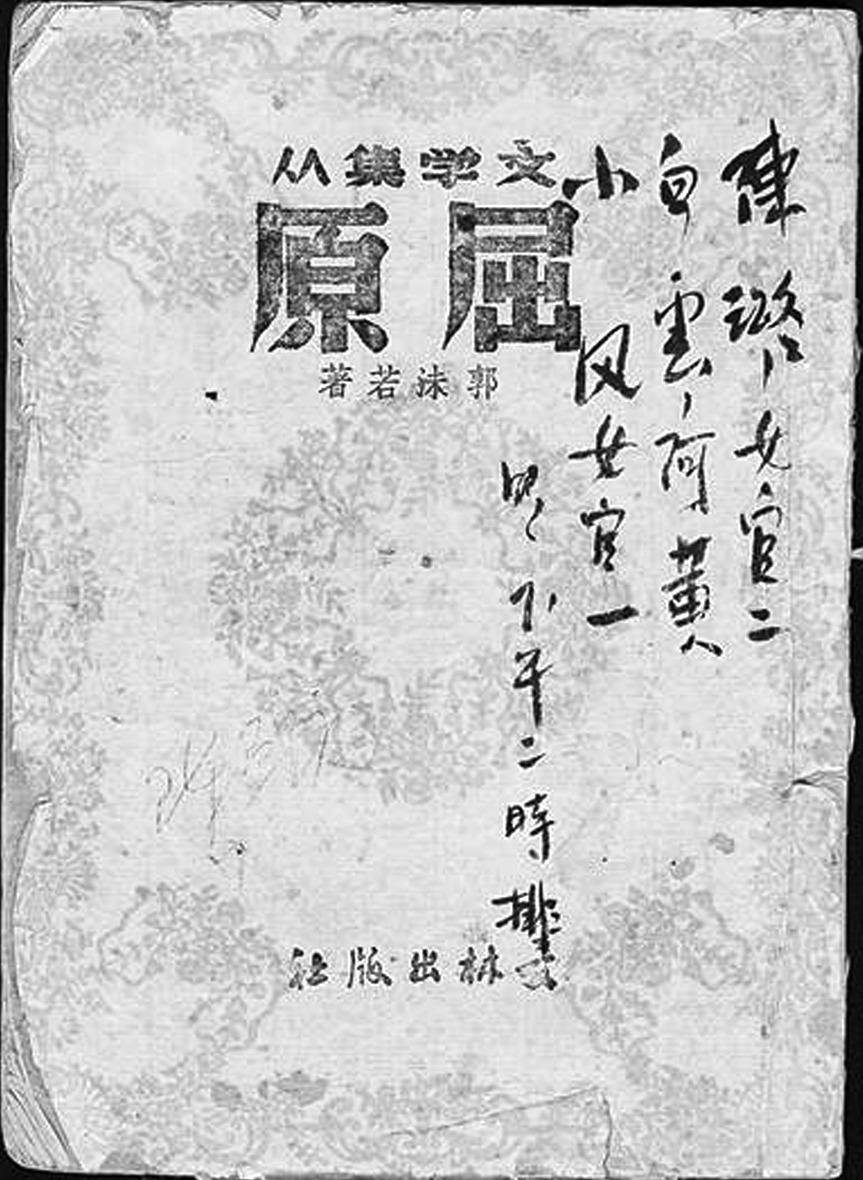 文学集从
屈原
郭沫若著
女官二
白雲、阿黃
小凤女官一
明、下午二時排
文林出版社